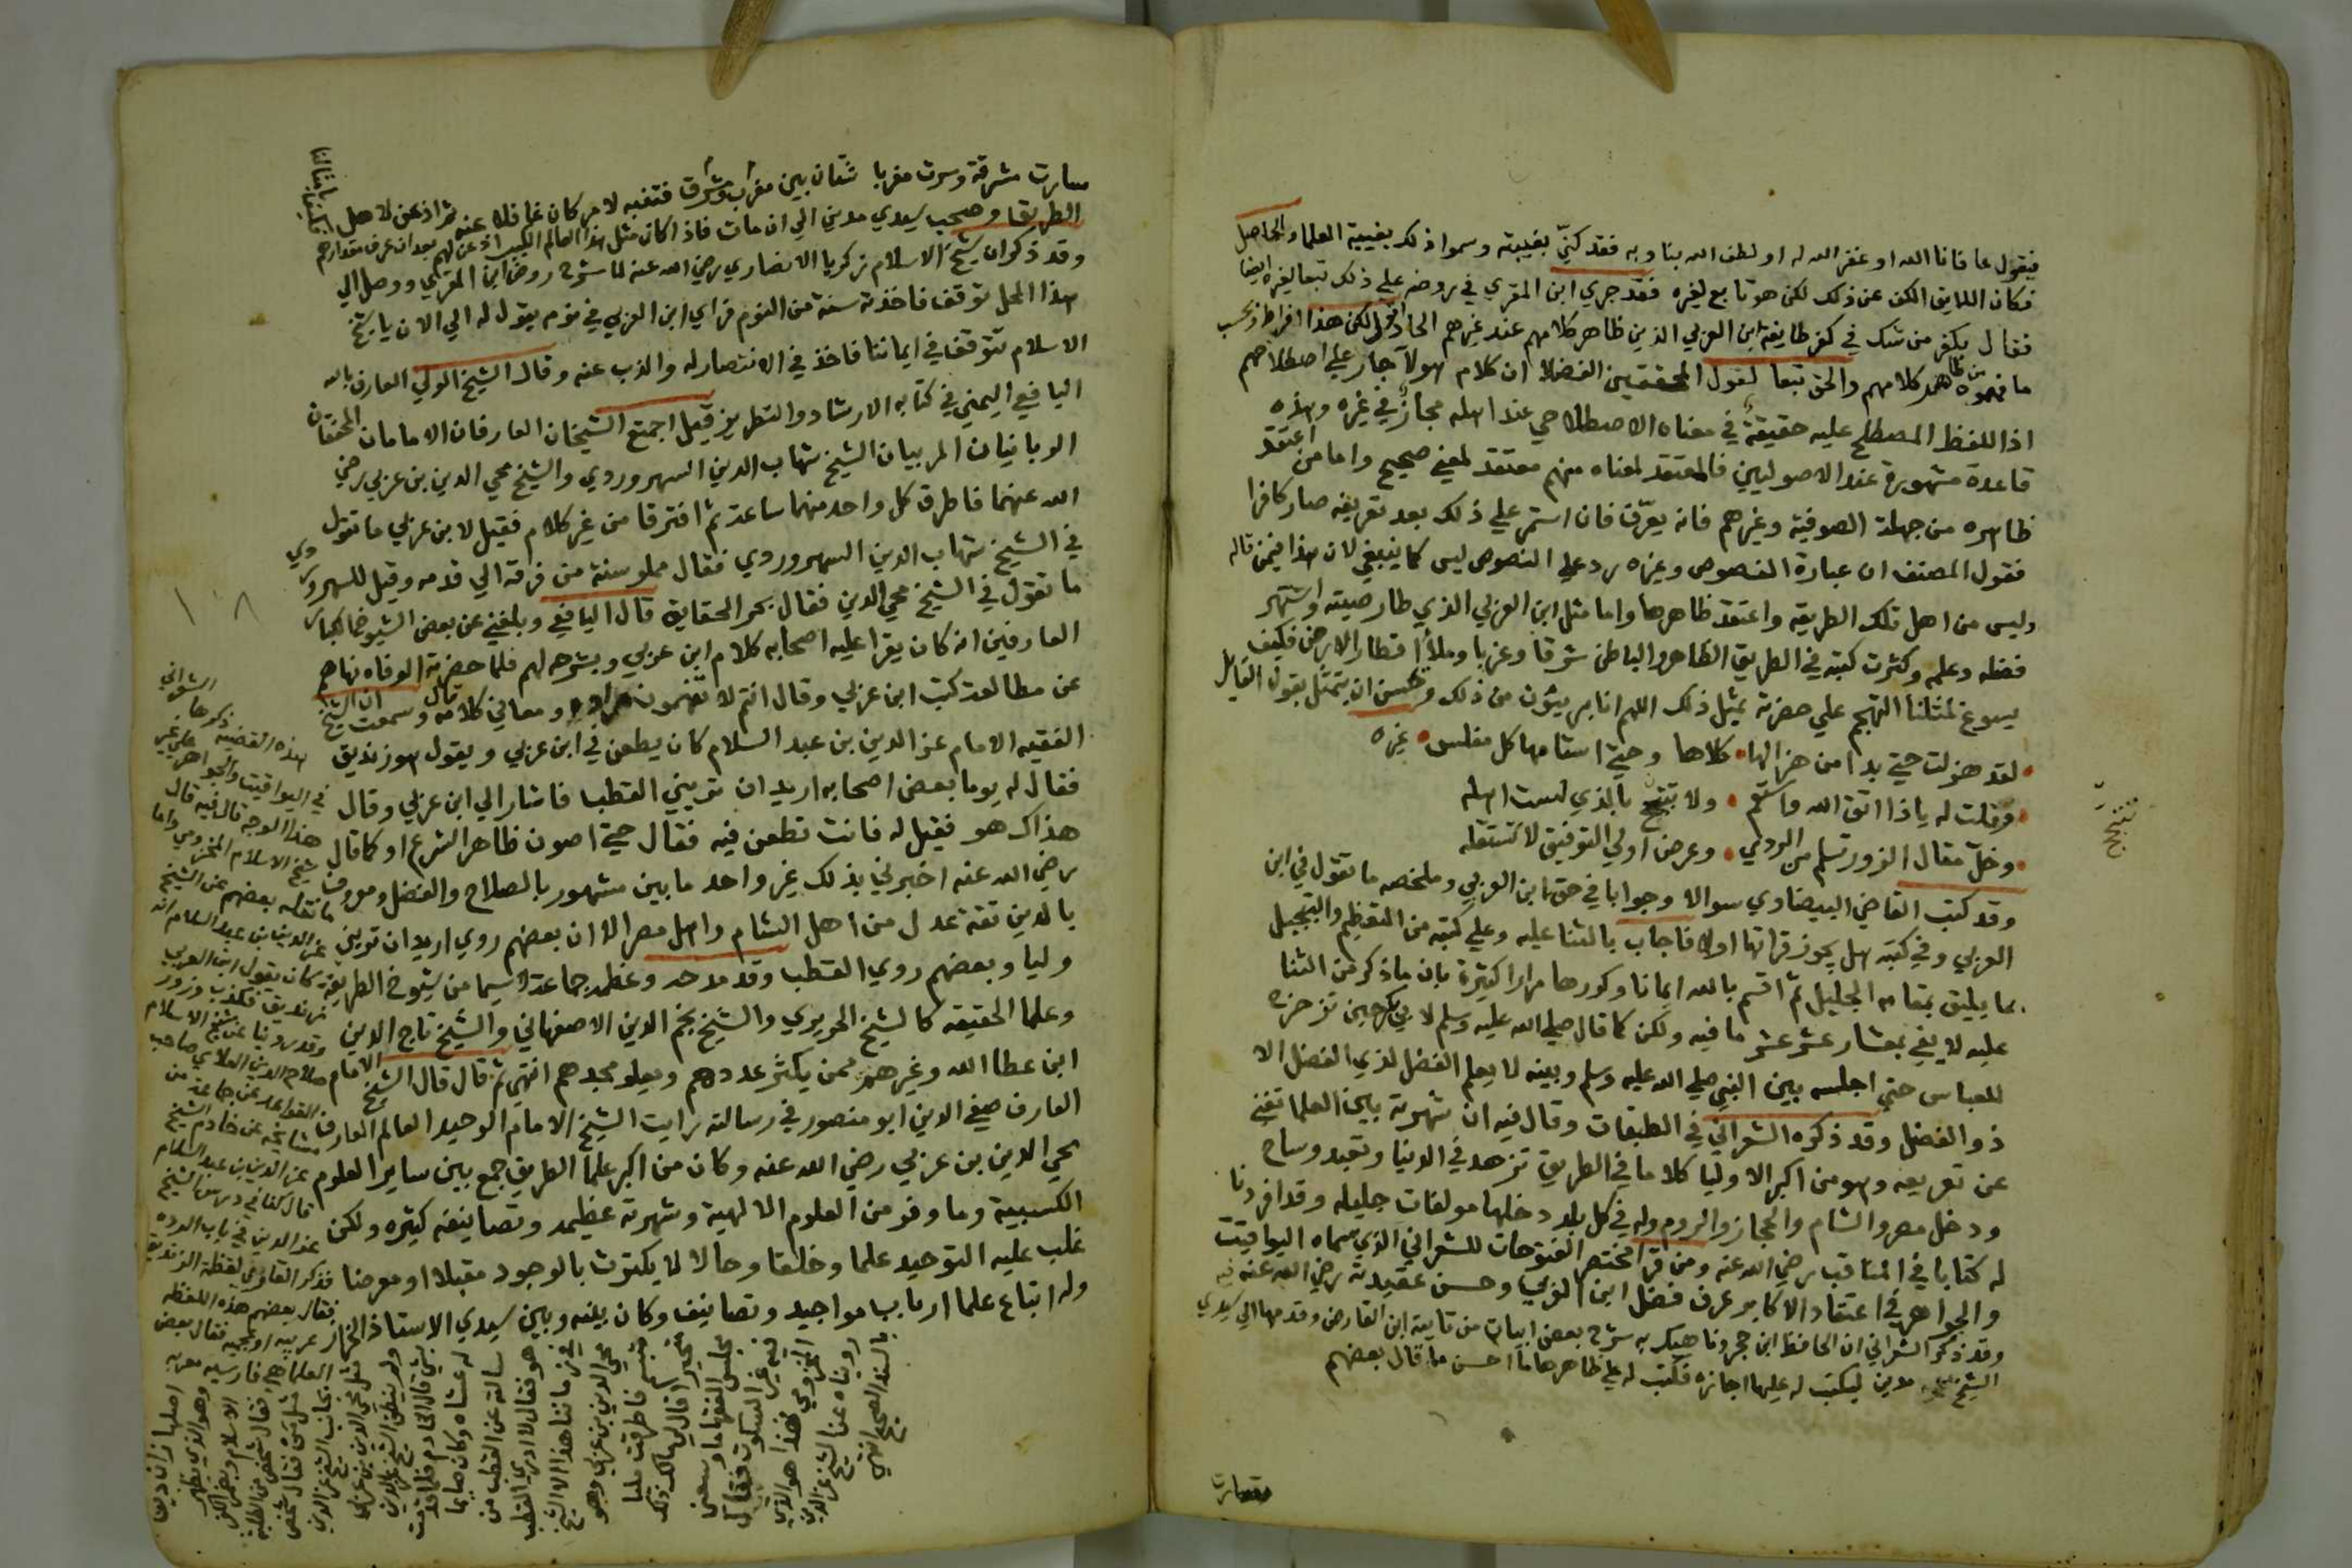 فيقول عافانا الله او غفر الله له او لطف الله بنا وبه فقد كنّي بغيبته وسموا ذلك بغيبة العلما والحاصل
فكان اللايق الكف عن ذلك لكن هو تابع لغيره فقد جري ابن المقري في روضه علي ذلك تبعا لغيره ايضا
فقال يكفر من شك في كفر طايفة ابن العربي الذين ظاهر كلامهم عند غيرهم الحاد انتهي لكن هذا افراط بحسب
ما فهموه من ظاهر كلامهم والحق تبعا لقول المحققين الفضلا ان كلام هولآ جار علي اصطلاحهم
اذ اللفظ المصطلح عليه حقيقة في معناه الاصطلاحي عند اهله مجاز في غيره وهذه
قاعدة مشهورة عند الاصوليين فالمعتقد لمعناه منهم معتقد لمعني صحيح واما من اعتقد
ظاهره من جهلة الصوفية وغيرهم فانه يعرّف فان استمر علي ذلك بعد تعريفه صار كافرا
فقول المصنف ان عبارة الفصوص وغيره رد علي النصوص ليس كما ينبغي لان هذا فيمن قاله
وليس من اهل تلك الطريقه واعتقد ظاهرها واما مثل ابن العربي الذي طار صيته واشتهر
فضله وعلمه وكثرت كتبه في الطريق الظاهر والباطن شرقا وغربا وملأ اقطار الارض فكيف
يسوغ لمثلنا التهجم علي حضرته بمثل ذلك اللهم انا بريئون من ذلك وحسن ان يتمثل بقول القايل
لقد هزلت حتي بدا من هزالها كلاها وحتي استامها كل مفلس غيره
فقلت له ياذا اتق الله واستقم ولا تتبجح بالذي لست اهله
وخلّ مقال الزور تسلم من الردي وعرض اولي التوفيق لا تنتقله
وقد كتب القاضي البيضاوي سوالا وجوابا في حق ابن العربي وملخصه ما تقول في ابن
العربي وفي كتبه هل يجوز قراتها اولا فاجاب بالثنا عليه وعلي كتبه من التعظيم والتبجيل
بما يليق بمقامه الجليل ثم اقسم بالله ايمانا وكررها مرارا كثيرة بان ما ذكر من الثنا
عليه لا يفي بمعشار عشر عشر ما فيه ولكن كما قال صلي الله عليه وسلم لابي بكر حين تزحزح
للعباس حتي اجلسه بين النبي صلي الله عليه وسلم وبينه لا يعلم الفضل لذي الفضل الا
ذو الفضل وقد ذكره الشعراني في الطبقات وقال فيه ان شهرته بين العلما تغني
عن تعريفه وهو من اكبر الاوليا كلاما في الطريق تزهد في الدنيا وتعبد وساح
ودخل مصر والشام والحجاز والروم وله في كل بلد دخلها مولفات جليله وقد افردنا
له كتابا في المناقب رضي الله عنه ومن قرا مختصر الفتوحات للشعراني الذي سماه اليواقيت
والجواهر في اعتقاد الاكابر عرف فضل ابن العربي وحسن عقيدته رضي الله عنه
وقد ذكر الشعراني ان الحافظ ابن حجر وناهيك به شرح بعض ابيات من تايية ابن الفارض وقدمها الي سيدي
الشيخ مدين ليكتب له عليها اجازه فكتب له علي ظاهرها ما احسن ما قال بعضهم
سارت
تتبجح
سارت مشرقة وسرت مغربا شتان بين مغرب ومشرق فتنبه لامر كان غافلا عنه ثم اذعن لاهل
الطريق وصحب سيدي مدين الي ان مات فاذا كان مثل هذا العالم الكبير اذعن لهم بعد ان عرف مقدارهم
وقد ذكر ان شيخ الاسلام زكريا الانصاري رضي الله عنه لما شرح روض ابن المقري ووصل الي
هذا المحل توقف فاخذته سنة من النوم فراي ابن العربي في نوم يقول له الي الان يا شيخ
الاسلام تتوقف في ايماننا فاخذ في الانتصار له والذب عنه وقال الشيخ الولي العارف بالله
اليافعي اليمني في كتابه الارشاد والتطريز قيل اجتمع الشيخان العارفان الامامان المحققان
الربانيان المربيان الشيخ شهاب الدين السهروردي والشيخ محي الدين بن عربي رضي
الله عنهما فاطرق كل واحد منهما ساعة ثم افترقا من غير كلام فقيل لابن عربي ما تقول
في الشيخ شهاب الدين السهروردي فقال مملو سنة من قرنه الي قدمه وقيل للسهروردي
ما تقول في الشيخ محي الدين فقال بحر الحقايق قال اليافعي وبلغني عن بعض الشيوخ الكبار
العارفين انه كان يقرا عليه اصحابه كلام ابن عربي ويشرحه لهم فلما حضرته الوفاه نهاهم
عن مطالعة كتب ابن عربي وقال انتم لا تفهمون مراده ومعاني كلامه وسمعت ان الشيخ
الفقيه الامام عز الدين بن عبد السلام كان يطعن في ابن عربي ويقول هو زنديق
فقال له يوما بعض اصحابه اريد ان تريني القطب فاشار الي ابن عربي وقال
هذاك هو فقيل له فانت تطعن فيه فقال حتي اصون ظاهر الشرع او كما قال
رضي الله عنه اخبرني بذلك غير واحد ما بين مشهور بالصلاح والفضل ومعروف
بالدين ثقة عدل من اهل الشام واهل مصر الا ان بعضهم روي اريد ان تريني
وليا وبعضهم روي القطب وقد مدحه وعظمه جماعة لاسيما من شيوخ الطريقة
وعلما الحقيقه كالشيخ الحريري والشيخ نجم الدين الاصفهاني والشيخ تاج الدين
ابن عطا الله وغيرهم ممن يكثر عددهم ويعلو مجدهم انتهي ثم قال قال الشيخ الامام
العارف صفي الدين ابو منصور في رسالته رايت الشيخ الامام الوحيد العالم العارف
محي الدين بن عربي رضي الله عنه وكان من اكبر علما الطريق جمع بين ساير العلوم
الكسبية وما وفر من العلوم الالهية وشهرته عظيمه وتصانيفه كثيره ولكن
غلب عليه التوحيد علما وخلقا وحالا لا يكترث بالوجود مقبلا او معرضا
وله اتباع علما ارباب مواجيد وتصانيف وكان بينه وبين سيدي الاستاذ الخراز
هذه القضيه ذكرها الشعراني
في اليواقيت والجواهر علي غير
هذا الوجه قال فيه قال
شيخ الاسلام المخزومي واما
ما نقله بعضهم عن الشيخ
عز الدين بن عبد السلام انه
كان يقول ابن العربي
زنديق فكذب وزور
وقد روينا عن شيخ الاسلام
صلاح الدين العلائي صاحب
القواعد عن جماعة من
مشايخه عن خادم الشيخ
عز الدين بن عبد السلام
قال كنا في درس الشيخ
عز الدين في باب الرده
فذكر القاري لفظة الزنديق
فقال بعضهم هذه اللفظه
عربيه او عجميه فقال بعض
العلما هي فارسيه معربه